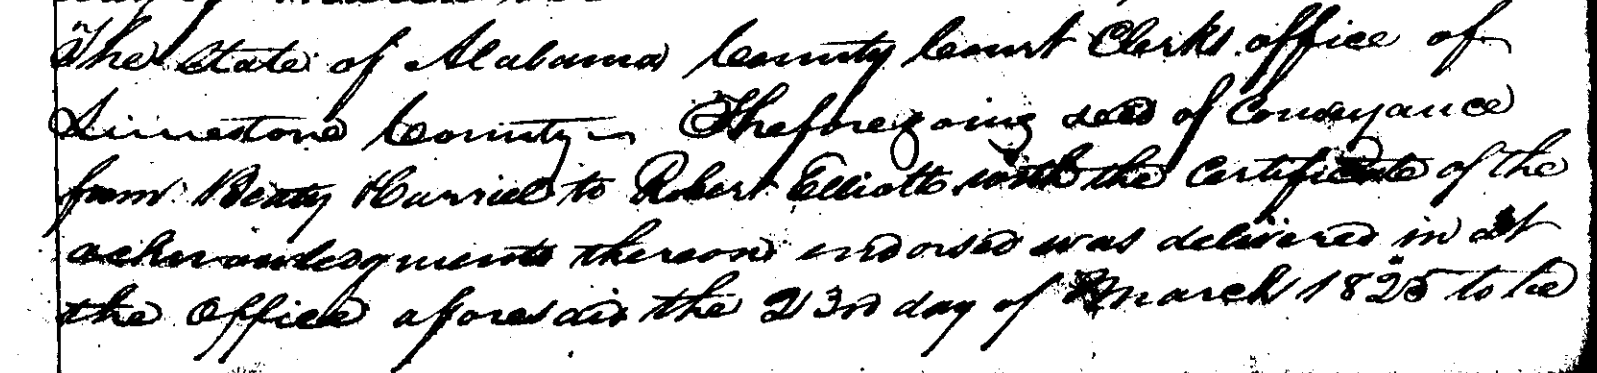 The State of Alabama County Court Clerks office of
Limestone County The foregoing deed of Conveyance
from Beaty Harriel to Robert Elliott with the Certificate of the
acknowledgments thereon endorsed was delivered in at
the Office aforesaid the 23rd day of March 1825 to be